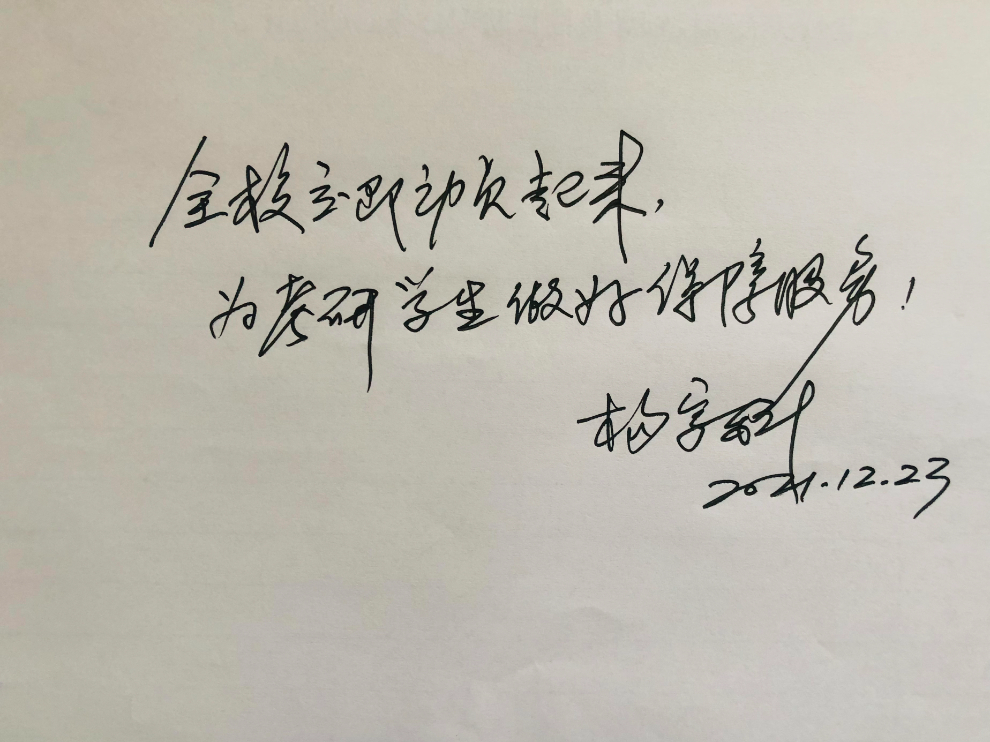 全校立即动员起来，
为考研学生做好保障服务！
杨宇科
2021.12.23